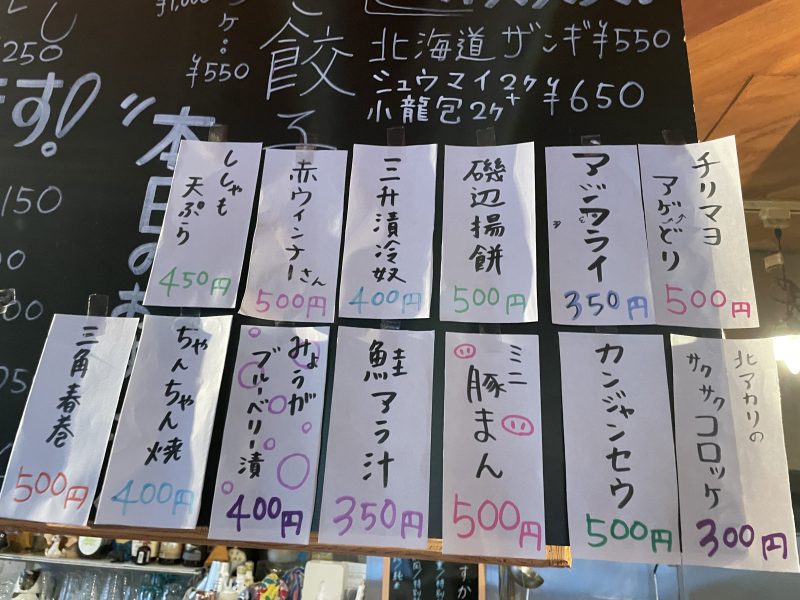 ¥550
餃
北海道 ザンギ ¥550
シュウマイ2ケ
小龍包2ケ
¥650
250
ます!
150
本日のお
チリマヨ
アゲどり
500円
アジフライ
350円
磯辺揚餅
500円
三升漬冷奴
400円
赤ウィンナーさん
500円
ししゃも
天ぷら
450円
北アカリの
サクサクコロッケ
300円
カンジャンセウ
500円
ミニ
豚まん
500円
鮭アラ汁
350円
みょうが
ブルーベリー漬
400円
ちゃんちゃん焼
400円
三角春巻
500円